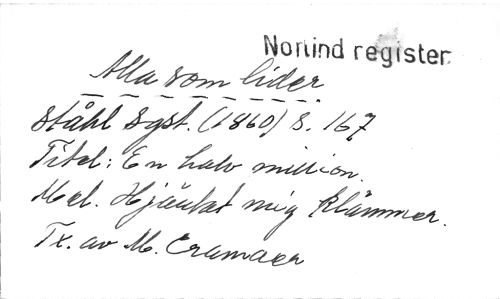 Norlind register
Alla som lider
Ståhl Sgst. (1860) S. 167
Titel: En halv million.
Mel. Hjärtat mig klämmer.
Tx. av M. Cramær